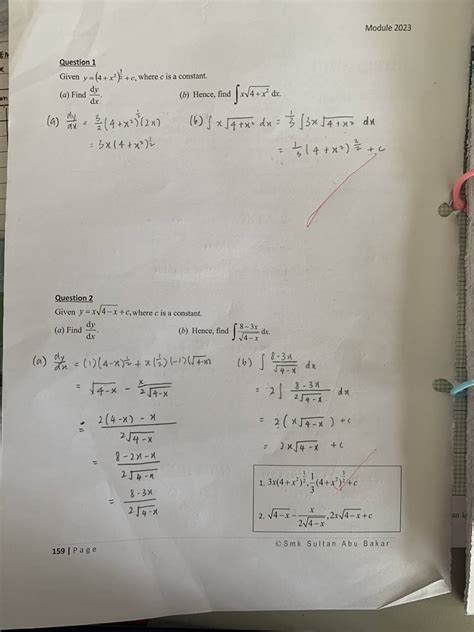 Module 2023
Question 1
Given y = (4 + x²)^(3/2) + c, where c is a constant.
(a) Find dy/dx (b) Hence, find ∫ x√(4 + x²) dx.
(a) dy/dx = 3/2 (4 + x²)^(1/2) (2x) (b) ∫ x √(4 + x²) dx = 1/3 ∫ 3x √(4 + x²) dx
= 3x (4 + x²)^(1/2) = 1/3 (4 + x²)^(3/2) + c
Question 2
Given y = x√(4 − x) + c, where c is a constant.
(a) Find dy/dx. (b) Hence, find ∫ (8 − 3x)/√(4 − x) dx.
(a) dy/dx = (1)(4 − x)^(1/2) + x(1/2)(−1)(√(4 − x)) (b) ∫ (8 − 3x)/√(4 − x) dx
= √(4 − x) − x/(2√(4 − x)) = 2 ∫ (8 − 3x)/(2√(4 − x)) dx
= (2(4 − x) − x)/(2√(4 − x)) = 2 (x√(4 − x)) + c
= (8 − 2x − x)/(2√(4 − x)) = 2x√(4 − x) + c
= (8 − 3x)/(2√(4 − x))
1. 3x(4 + x²)^(1/2), 1/3 (4 + x²)^(3/2) + c
2. √(4 − x) − x/(2√(4 − x)), 2x√(4 − x) + c
159 | Page ©Smk Sultan Abu Bakar